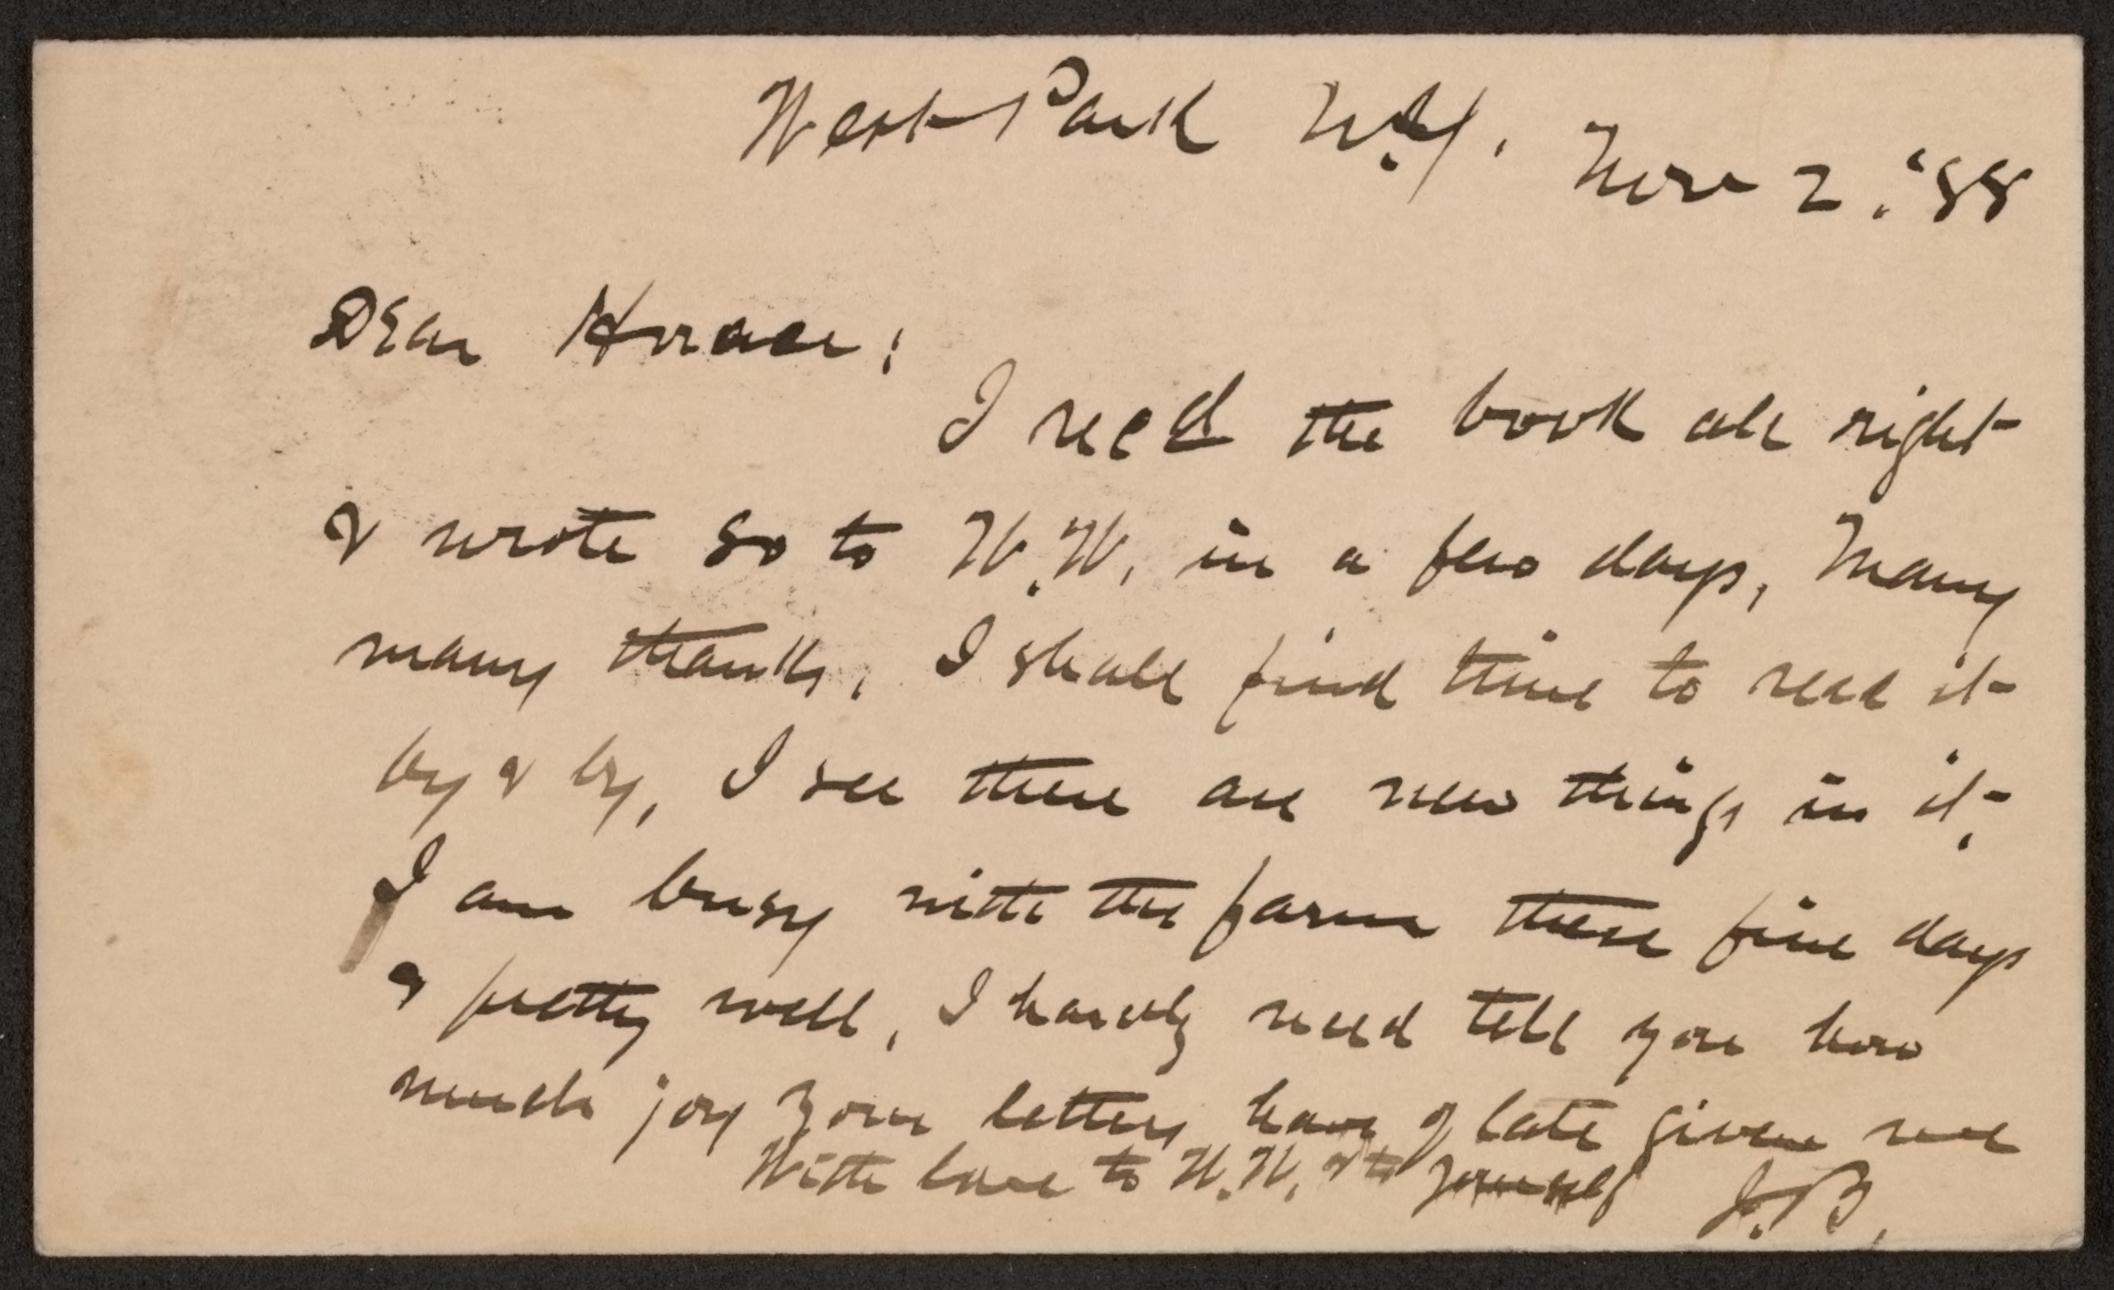 West Park N.Y. Nov 2. '88
Dear Horace;
I recd the book all right
& wrote so to W.W. in a few days, Many
many thanks. I shall find time to read it
by & by, I see there are new things in it.
I am busy with the farm these fine days
& pretty well, I hardly need tell you how
much joy your letters have of late given me
With love to W.W. & to yourself J.B.